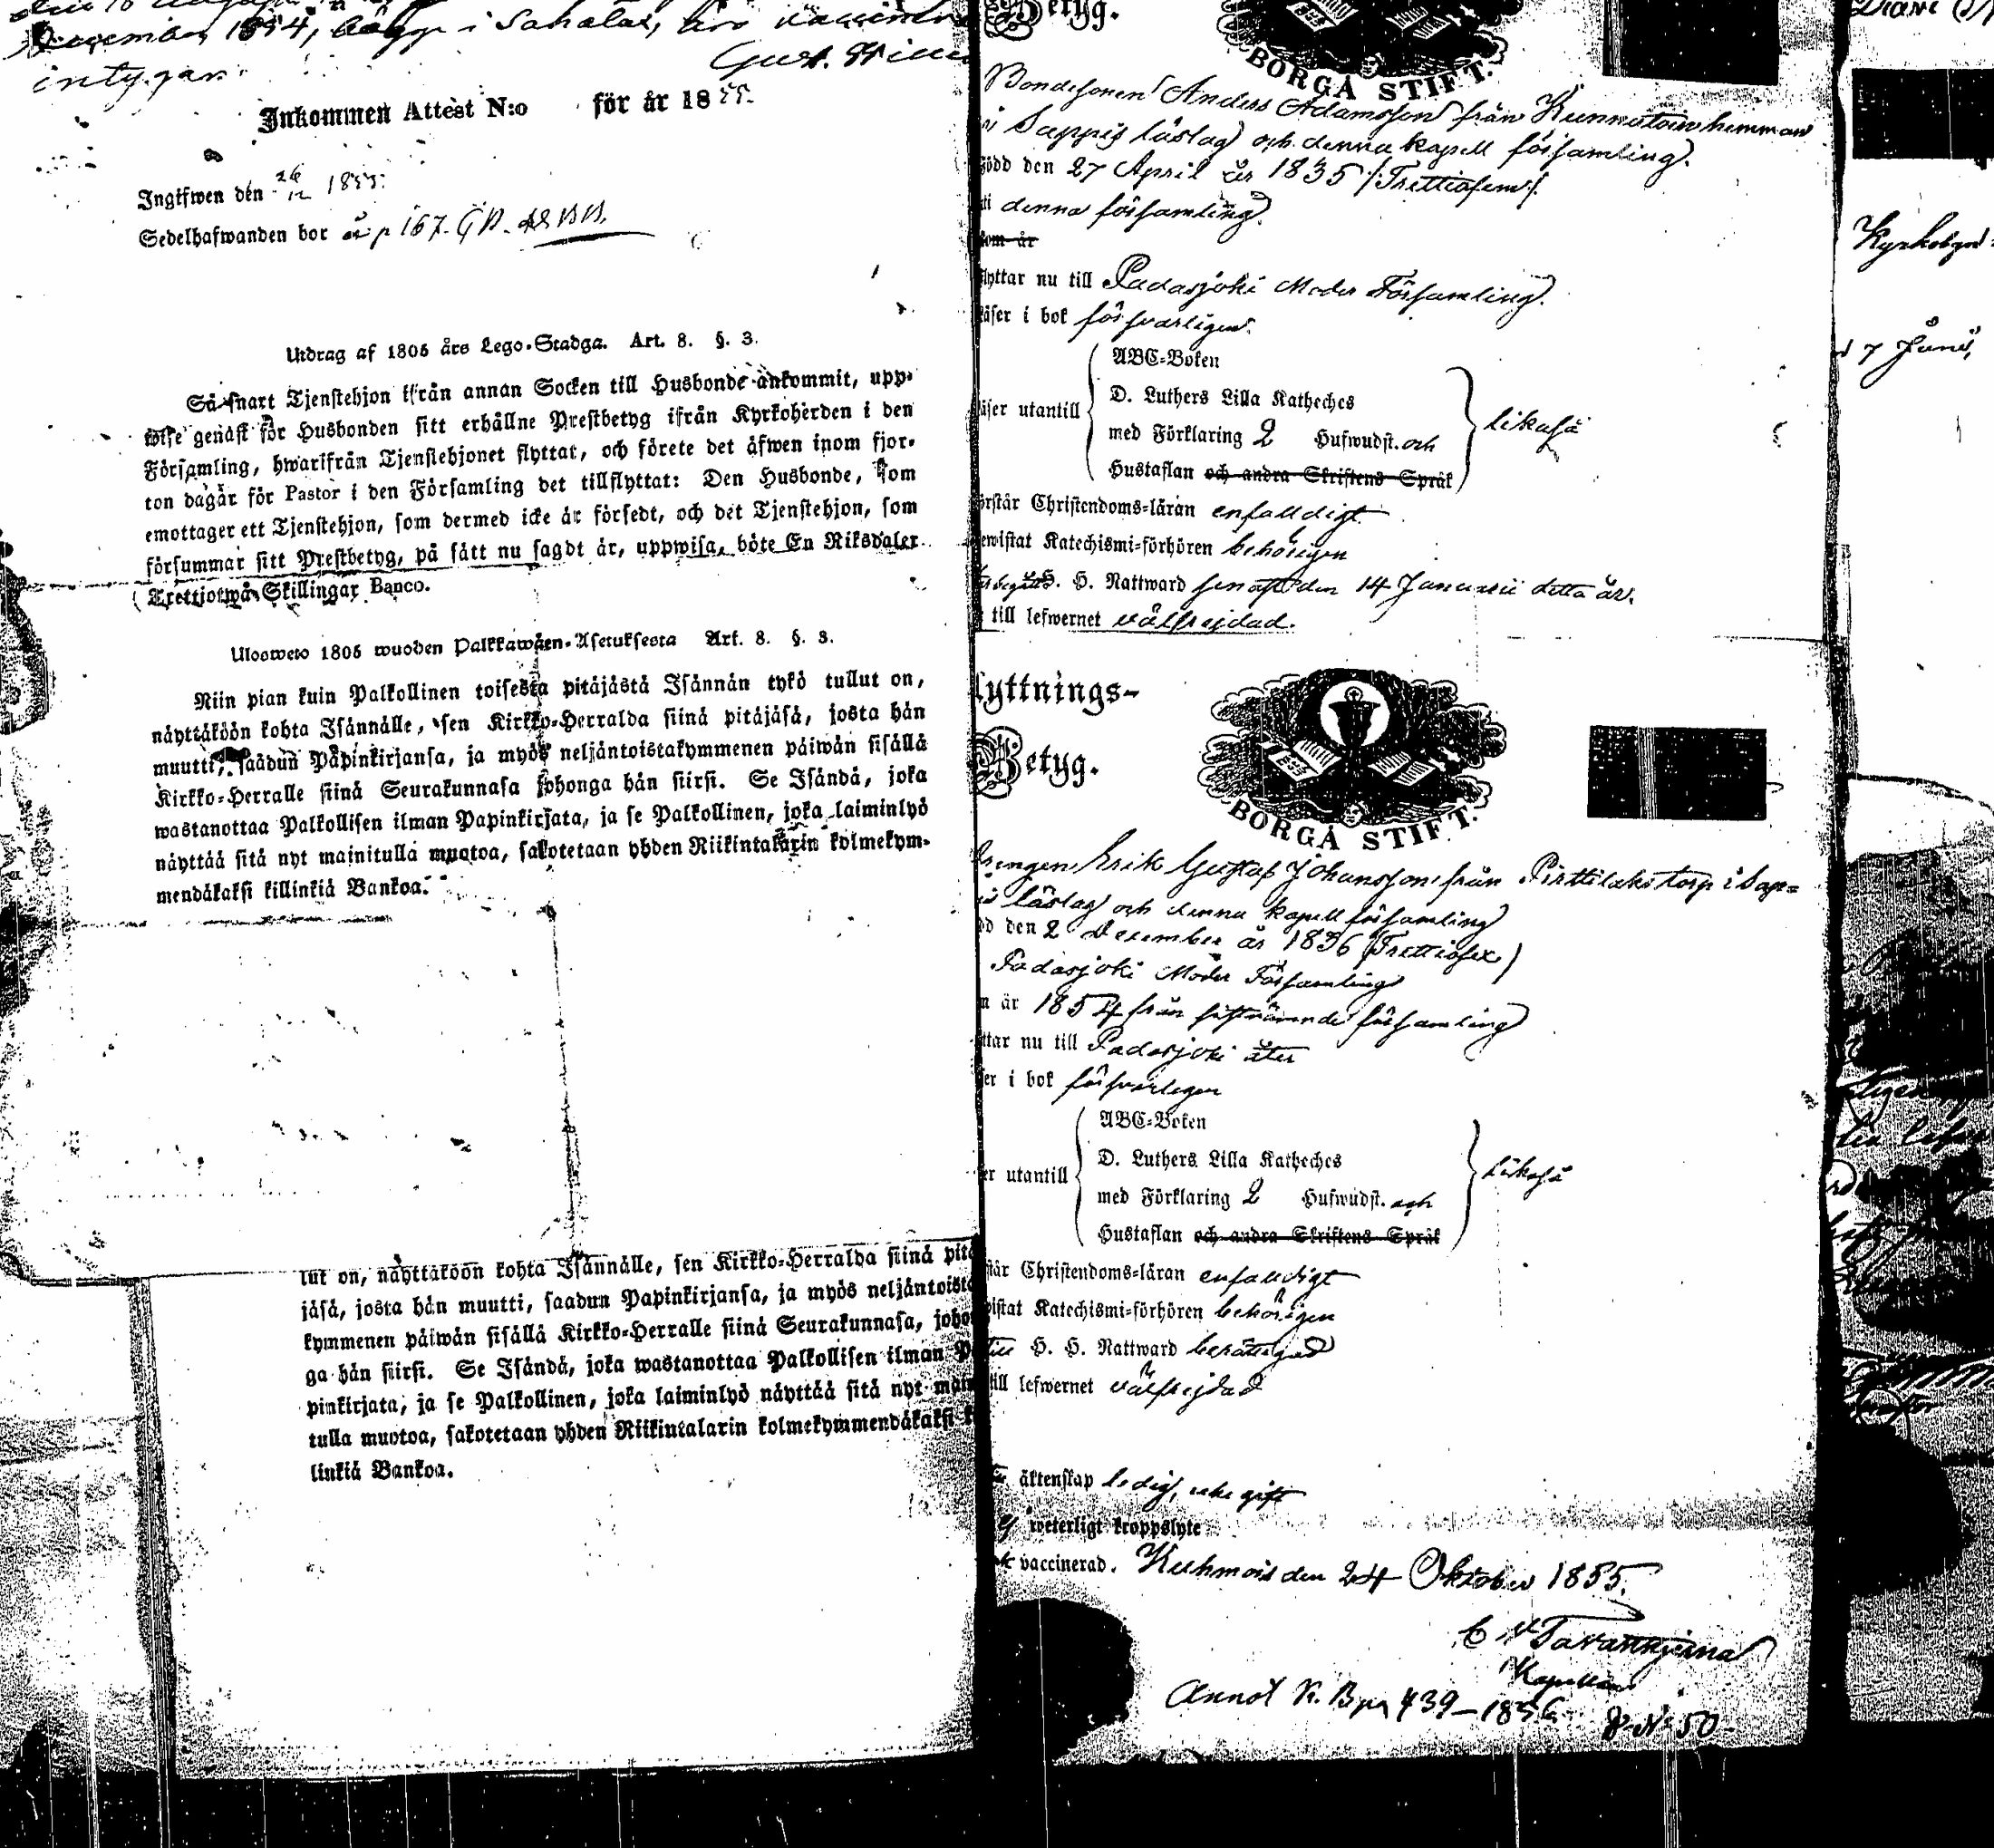 December 1854, i Sahalax, är
intygar.
Inkommen Attest N:o för år 1855.
Ingifwen den 26/12 1855.
Sedelhafwanden bor å p 167.
Utdrag af 1805 års Lego-Stadga. Art. 8. §. 3.
Så snart Tjenstehjon ifrån annan Socken till Husbonde ankommit, upp-
wise genast för Husbonden sitt erhållne Prestbetyg ifrån Kyrkoherden i den
Församling, hwarifrån Tjenstehjonet flyttat, och förete det äfwen inom fjor-
ton dagar för Pastor i den Församling det tillflyttat: Den Husbonde, som
emottager ett Tjenstehjon, som dermed icke är försedt, och det Tjenstehjon, som
försummar sitt Prestbetyg, på sätt nu sagdt är, uppwisa, böte En Riksdaler
Trettiotwå Skillingar Banco.
Ulosweto 1805 wuoden Palkkawäen-Asetuksesta Art. 8. §. 3.
Niin pian kuin Palkollinen toisesta pitäjästä Isännän tykö tullut on,
näyttäköön kohta Isännälle, sen Kirkko-Herralda siinä pitäjäsä, josta hän
muutti, saadun Papinkirjansa, ja myös neljäntoistakymmenen päiwän sisällä
Kirkko-Herralle siinä Seurakunnasa johonga hän siirsi. Se Isändä, joka
wastanottaa Palkollisen ilman Papinkirjata, ja se Palkollinen, joka laiminlyö
näyttää sitä nyt mainitulla muotoa, sakotetaan yhden Riikintalarin kolmekym-
mendäkaksi killinkiä Bankoa.
lut on, näyttäköön kohta Isännälle, sen Kirkko-Herralda siinä pitä
jäsä, josta hän muutti, saadun Papinkirjansa, ja myös neljäntoista
kymmenen päiwän sisällä Kirkko-Herralle siinä Seurakunnasa, joho
ga hän siirsi. Se Isändä, joka wastanottaa Palkollisen ilman P
pinkirjata, ja se Palkollinen, joka laiminlyö näyttää sitä nyt main
tulla muotoa, sakotetaan yhden Riikintalarin kolmekymmendäkaksi k
linkiä Bankoa.
Betyg.
BORGÅ STIFT.
Bondesonen Anders Adamsson från Kunnatoin hemman
i Sappis läslag och denna kapell församling.
Född den 27 April år 1835 /:Trettiofem:/
i denna församling.
kom år
flyttar nu till Padasjoki Moder Församling.
läser i bok försvarligen.
läser utantill
ABC-Boken
D. Luthers Lilla Katheches
med Förklaring 2 Hufwudst. och
Hustaflan och andra Skriftens Språk
likaså
örstår Christendoms-läran enfaldigt
ewistat Katechismi-förhören behörigen
begått H. H. Nattward senast den 14 Januarii detta år.
till lefwernet välfrejdad.
lyttnings-
Betyg.
BORGÅ STIFT.
Drengen Erik Gustaf Johansson från Pirttilaks torp i Sap=
is läslag och denna kapell församling
dd den 2 December år 1836 (Trettiosex)
Padasjoki Moder Församling
m år 1854 från sistnämnde församling
ttar nu till Padasjoki åter
er i bok försvarligen
er utantill
ABC-Boken
D. Luthers Lilla Katheches
med Förklaring 2 Hufwudst. och
Hustaflan och andra Skriftens Språk
likaså
står Christendoms-läran enfaldigt
wistat Katechismi-förhören behörigen
till H. H. Nattward berättigad
till lefwernet välfrejdad
äktenskap ledig, icke gift
weterligt kroppslyte
vaccinerad. Kuhmois den 24 Oktober 1855.
Kapellan
Annot K. B pa 439-1856
N 50
Kyrkobyn
7 Junii,